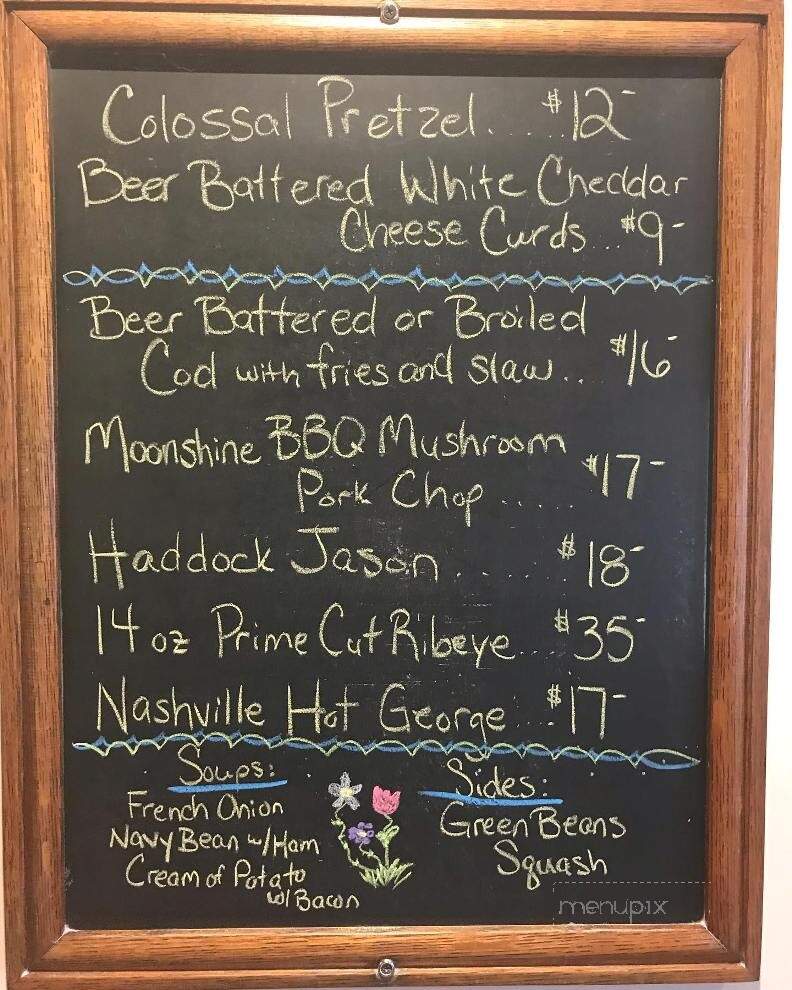 Colossal Pretzel..... $12-
Beer Battered White Cheddar
Cheese Curds... $9-
Beer Battered or Broiled
Cod with fries and slaw... $16-
Moonshine BBQ Mushroom
Pork Chop..... $17-
Haddock Jason....... $18-
14 oz Prime Cut Ribeye.... $35-
Nashville Hot George... $17-
Soups:
French Onion
Navy Bean w/Ham
Cream of Potato
w/ Bacon
Sides:
Green Beans
Squash
menupix